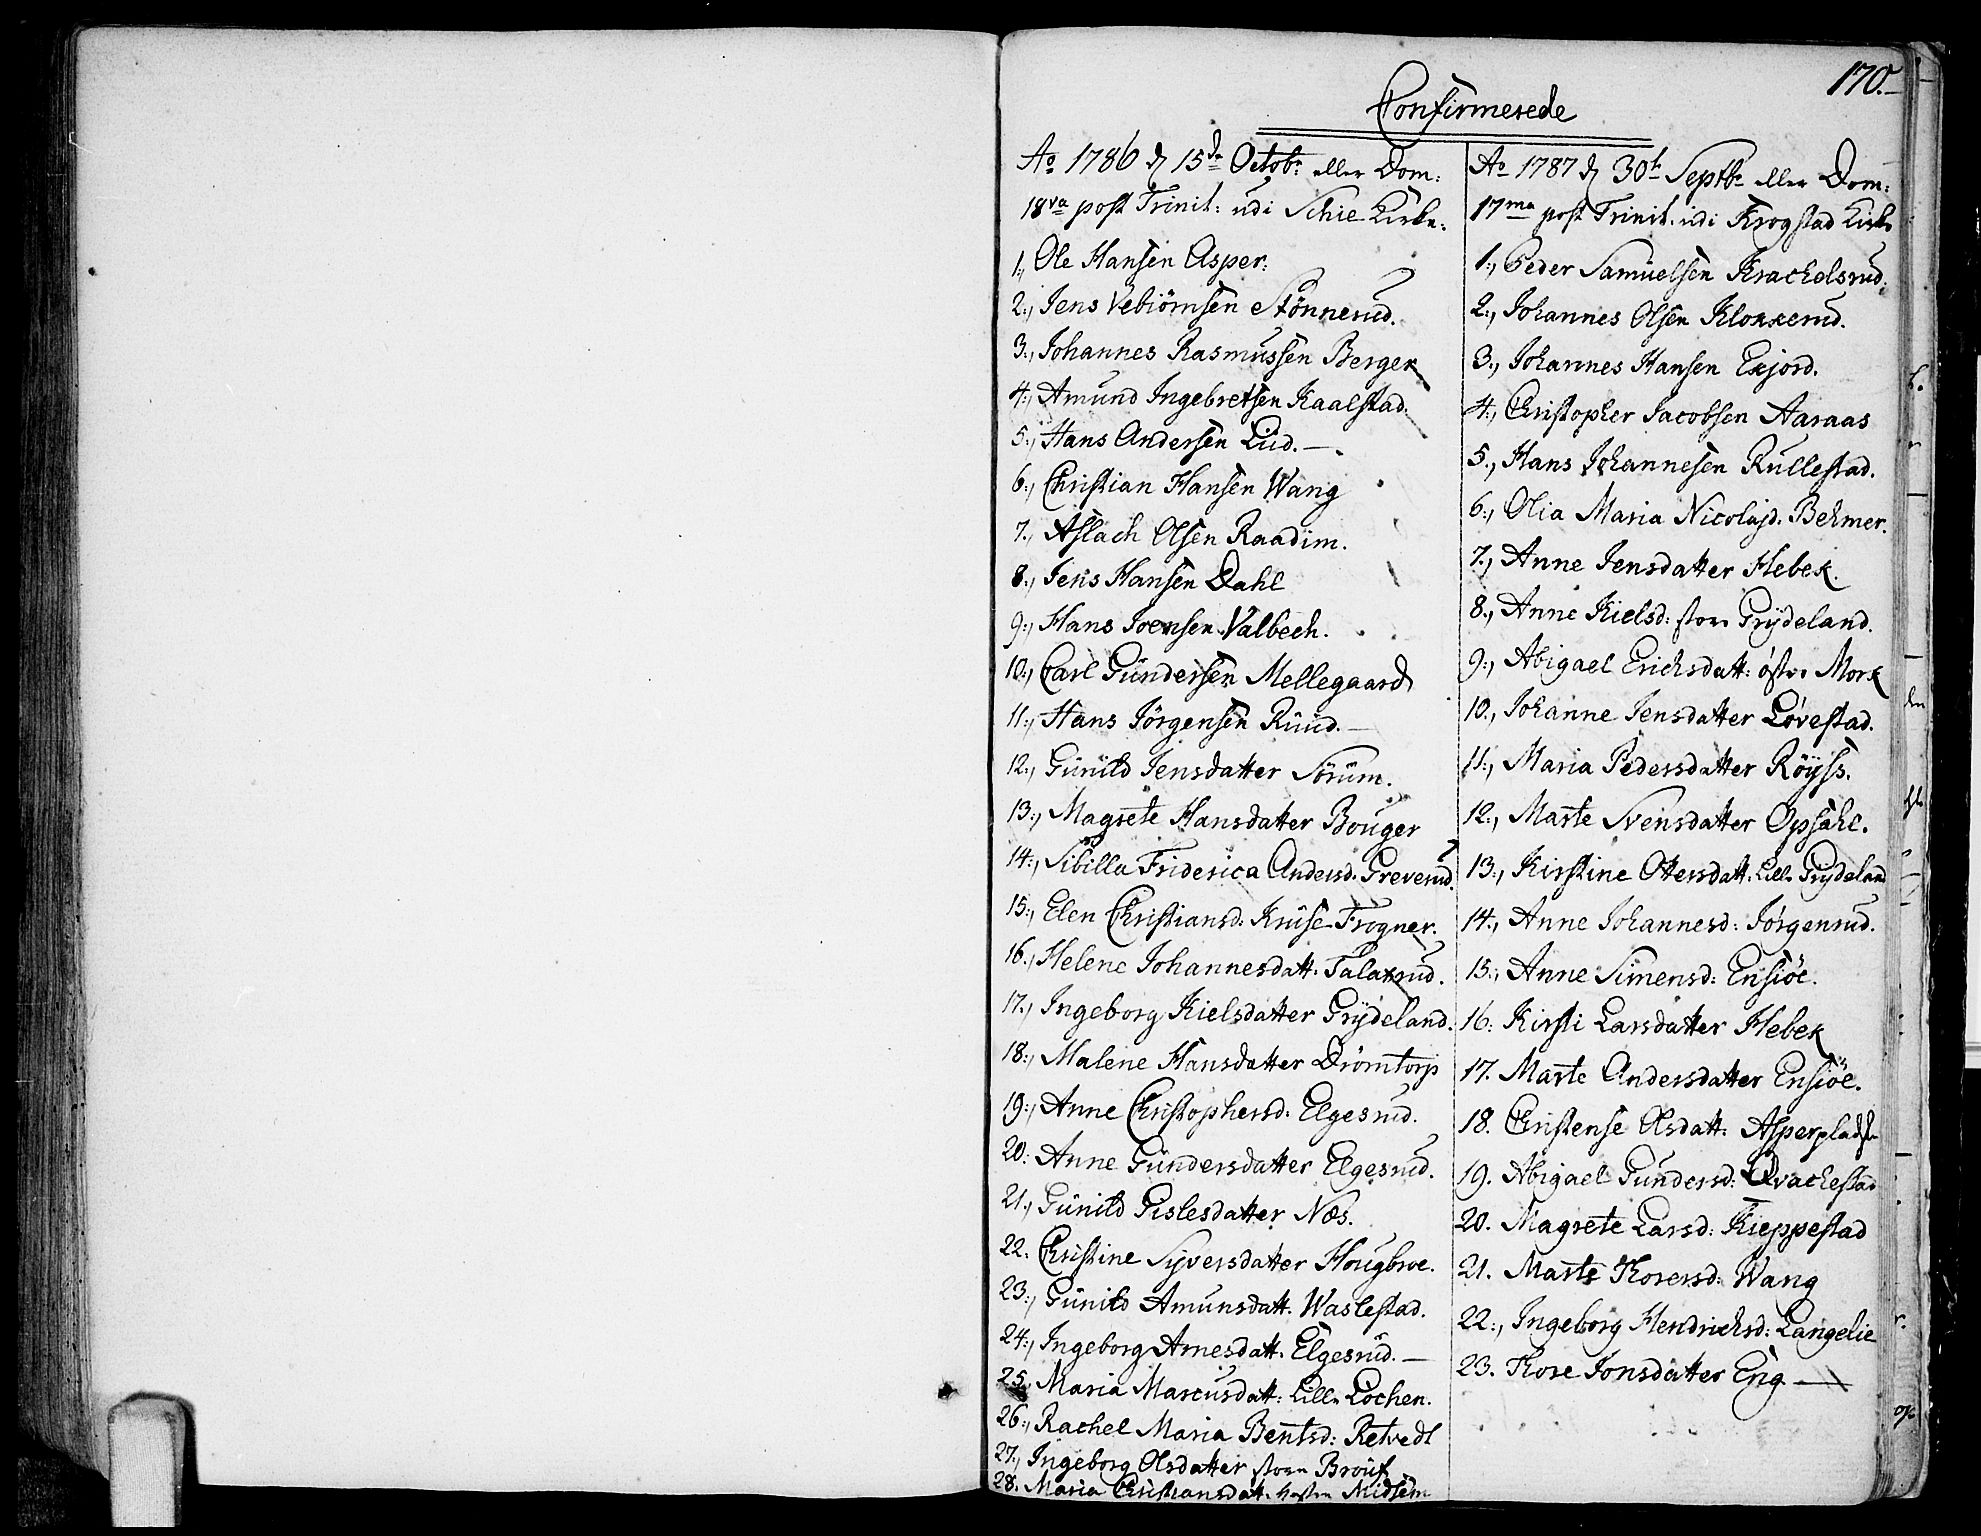 170.
Confirmerede
Ao 1786 d 15de Octobr eller Dom:
18va post Trinit: udi Schie Kirke.
1., Ole Hansen Asper:
2., Jens Vebiörnsen Stönnerud.
3., Johannes Rasmussen Berger
4., Amund Ingebretsen Kaalstad.
5., Hans Andersen Lud. —
6., Christian Hansen Wang
7., Aslach Olsen Raadim.
8., Jens Hansen Dahl
9., Hans Joensen Valbech.
10., Carl Gundersen Mellegaard
11., Hans Jörgensen Ruud. —
12., Gunild Jensdatter Sörum.
13., Magrete Hansdatter Bouger
14., Sibilla Friderica Andersd. Greverud.
15., Elen Christiansd: Kruse Frogner.
16., Helene Johannesdatt. Talaxrud.
17., Ingeborg Kielsdatter Grydeland.
18., Malene Hansdatter Drömtorp
19., Anne Christophersd: Elgesrud.
20: Anne Gundersdatter Elgesrud.
21., Gunild Gislesdatter Næs.
22. Christine Syversdatter Hougbroe.
23., Gunild Amunsdatt. Waslestad.
24., Ingeborg Arnesdatt. Elgesrud. —
25., Maria Marcusdatt: Lille Lochen.
26., Rachel Maria Bentsd: Retvedt
27., Ingeborg Olsdatter store
28. Maria Christiansdatt. Midsem
Ao 1787 d 30t Septbr eller Dom:
17ma post Trinit. udi Krogstad Kirke
1., Peder Samuelsen Krachelsrud.
2., Johannes Olsen Kloxxerud.
3., Johannes Hansen Exjord.
4., Christopher Jacobsen Aaraas
5., Hans Johannesen Rullestad.
6., Olia Maria Nicolajd. Behmer.
7., Anne Jensdatter Hebek.
8., Anne Kielsd: store Grydeland.
9., Abigael Erichsdatt: östre Mork
10., Johanne Jensdatter Lövestad.
11., Maria Pedersdatter Röyss.
12., Marte Svensdatter Opsahl.
13., Kirstine Ottersdatt. Lille Grydeland
14., Anne Johannesd: Jörgenrud.
15., Anne Simensd: Ensiöe.
16: Kirsti Larsdatter Hebek
17. Marte Andersdatter Ensiöe.
18. Christense Olsdatt: Asperpladsen
19. Abigael Gundersd: Qvachestad
20. Magrete Larsd: Kieppestad
21. Marte Thorersd: Wang
22., Ingeborg Hendrichsd: Langelie
23. Thore Jonsdatter Eng —